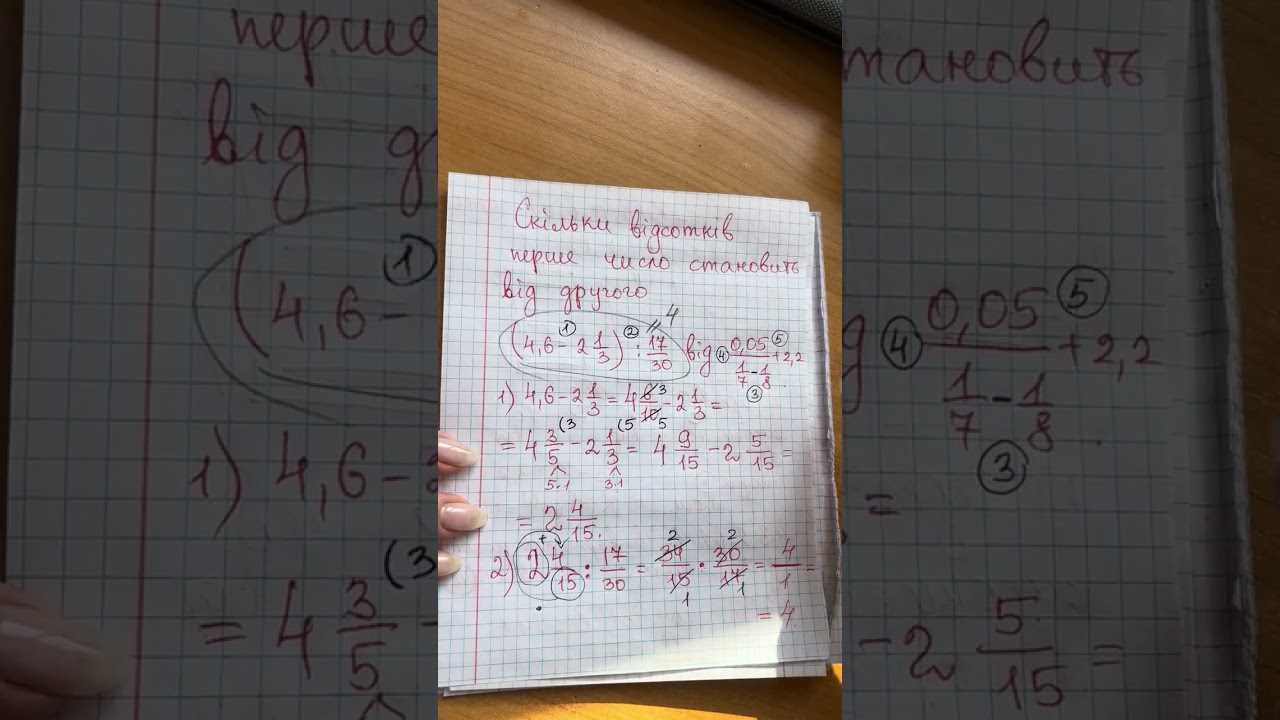 Скільки відсотків
перше число становить
від другого
(4,6 - 2 1/3) : 17/30 від 0,05/(1/7 - 1/8) + 2,2
① ② = 4 ④ ⑤ ③
1) 4,6 - 2 1/3 = 4 6/10 - 2 1/3 =
3 5
= 4 3/5 (3 - 2 1/3 (5 = 4 9/15 - 2 5/15 =
5·1 3·1
= 2 4/15.
2) 2 4/15 : 17/30 = 34/15 · 30/17 = 4/1 =
+ · 2 1 2 1
= 4